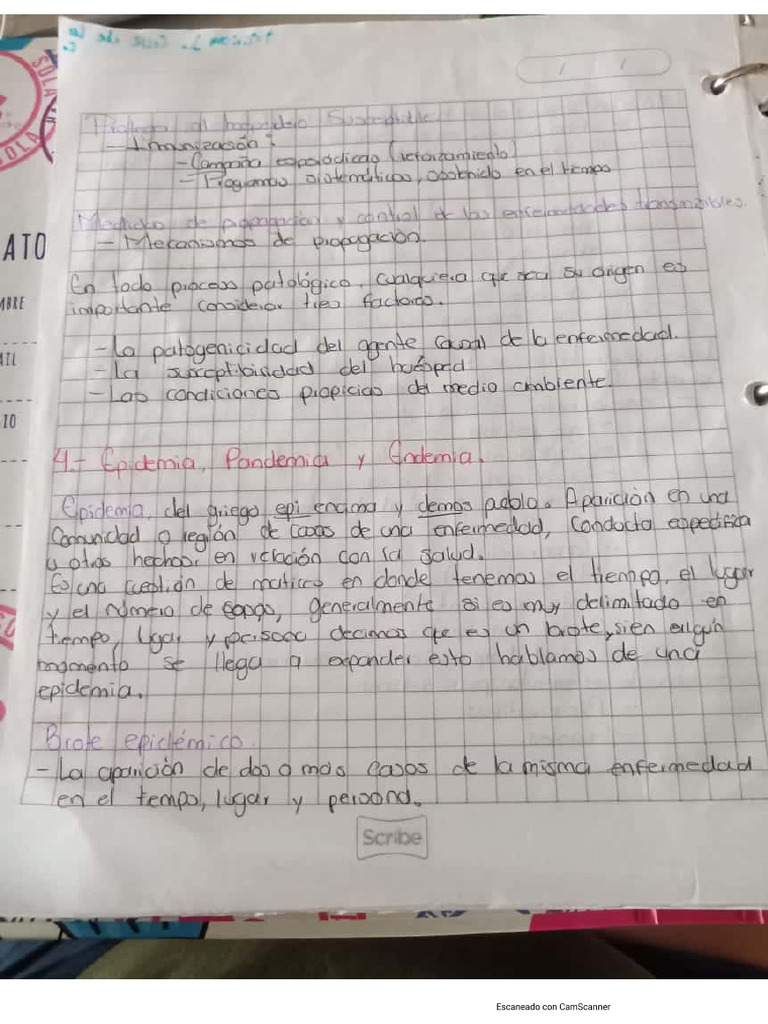 al Susceptible
- Inmunización:
- Campaña esporádicas (reforzamiento)
- Programas sistemáticos, obtenido en el tiempo
Medidas de propagación y control de las enfermedades transmisibles.
- Mecanismos de propagación.
En todo proceso patológico, cualquiera que sea su origen es
importante considerar tres factores.
- La patogenicidad del agente causal de la enfermedad.
- La susceptibilidad del huésped
- Las condiciones propicias del medio ambiente.
4.- Epidemia, Pandemia y Endemia.
Epidemia, del griego epi encima y demos pueblo. Aparición en una
comunidad o región de casos de una enfermedad, conducta especifica
u otros hechos, en relación con la salud.
Es una cuestión de en donde tenemos el tiempo, el lugar
y el número de generalmente si es muy delimitado en
tiempo, lugar y decimos que es un brote, si en algún
momento se llega a expander esto hablamos de una
epidemia.
Brote epidémico.
- La aparición de dos o más casos de la misma enfermedad
en el tiempo, lugar y persona.
Scribe
SOLA
ATO
MBRE
IO
Escaneado con CamScanner